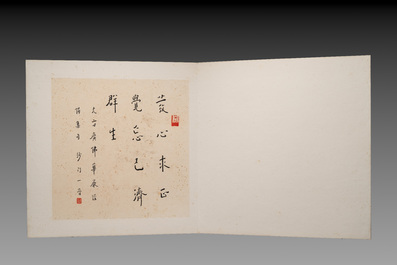 發心求正
覺忘己濟
群生
大方廣佛華嚴經
沙門一音